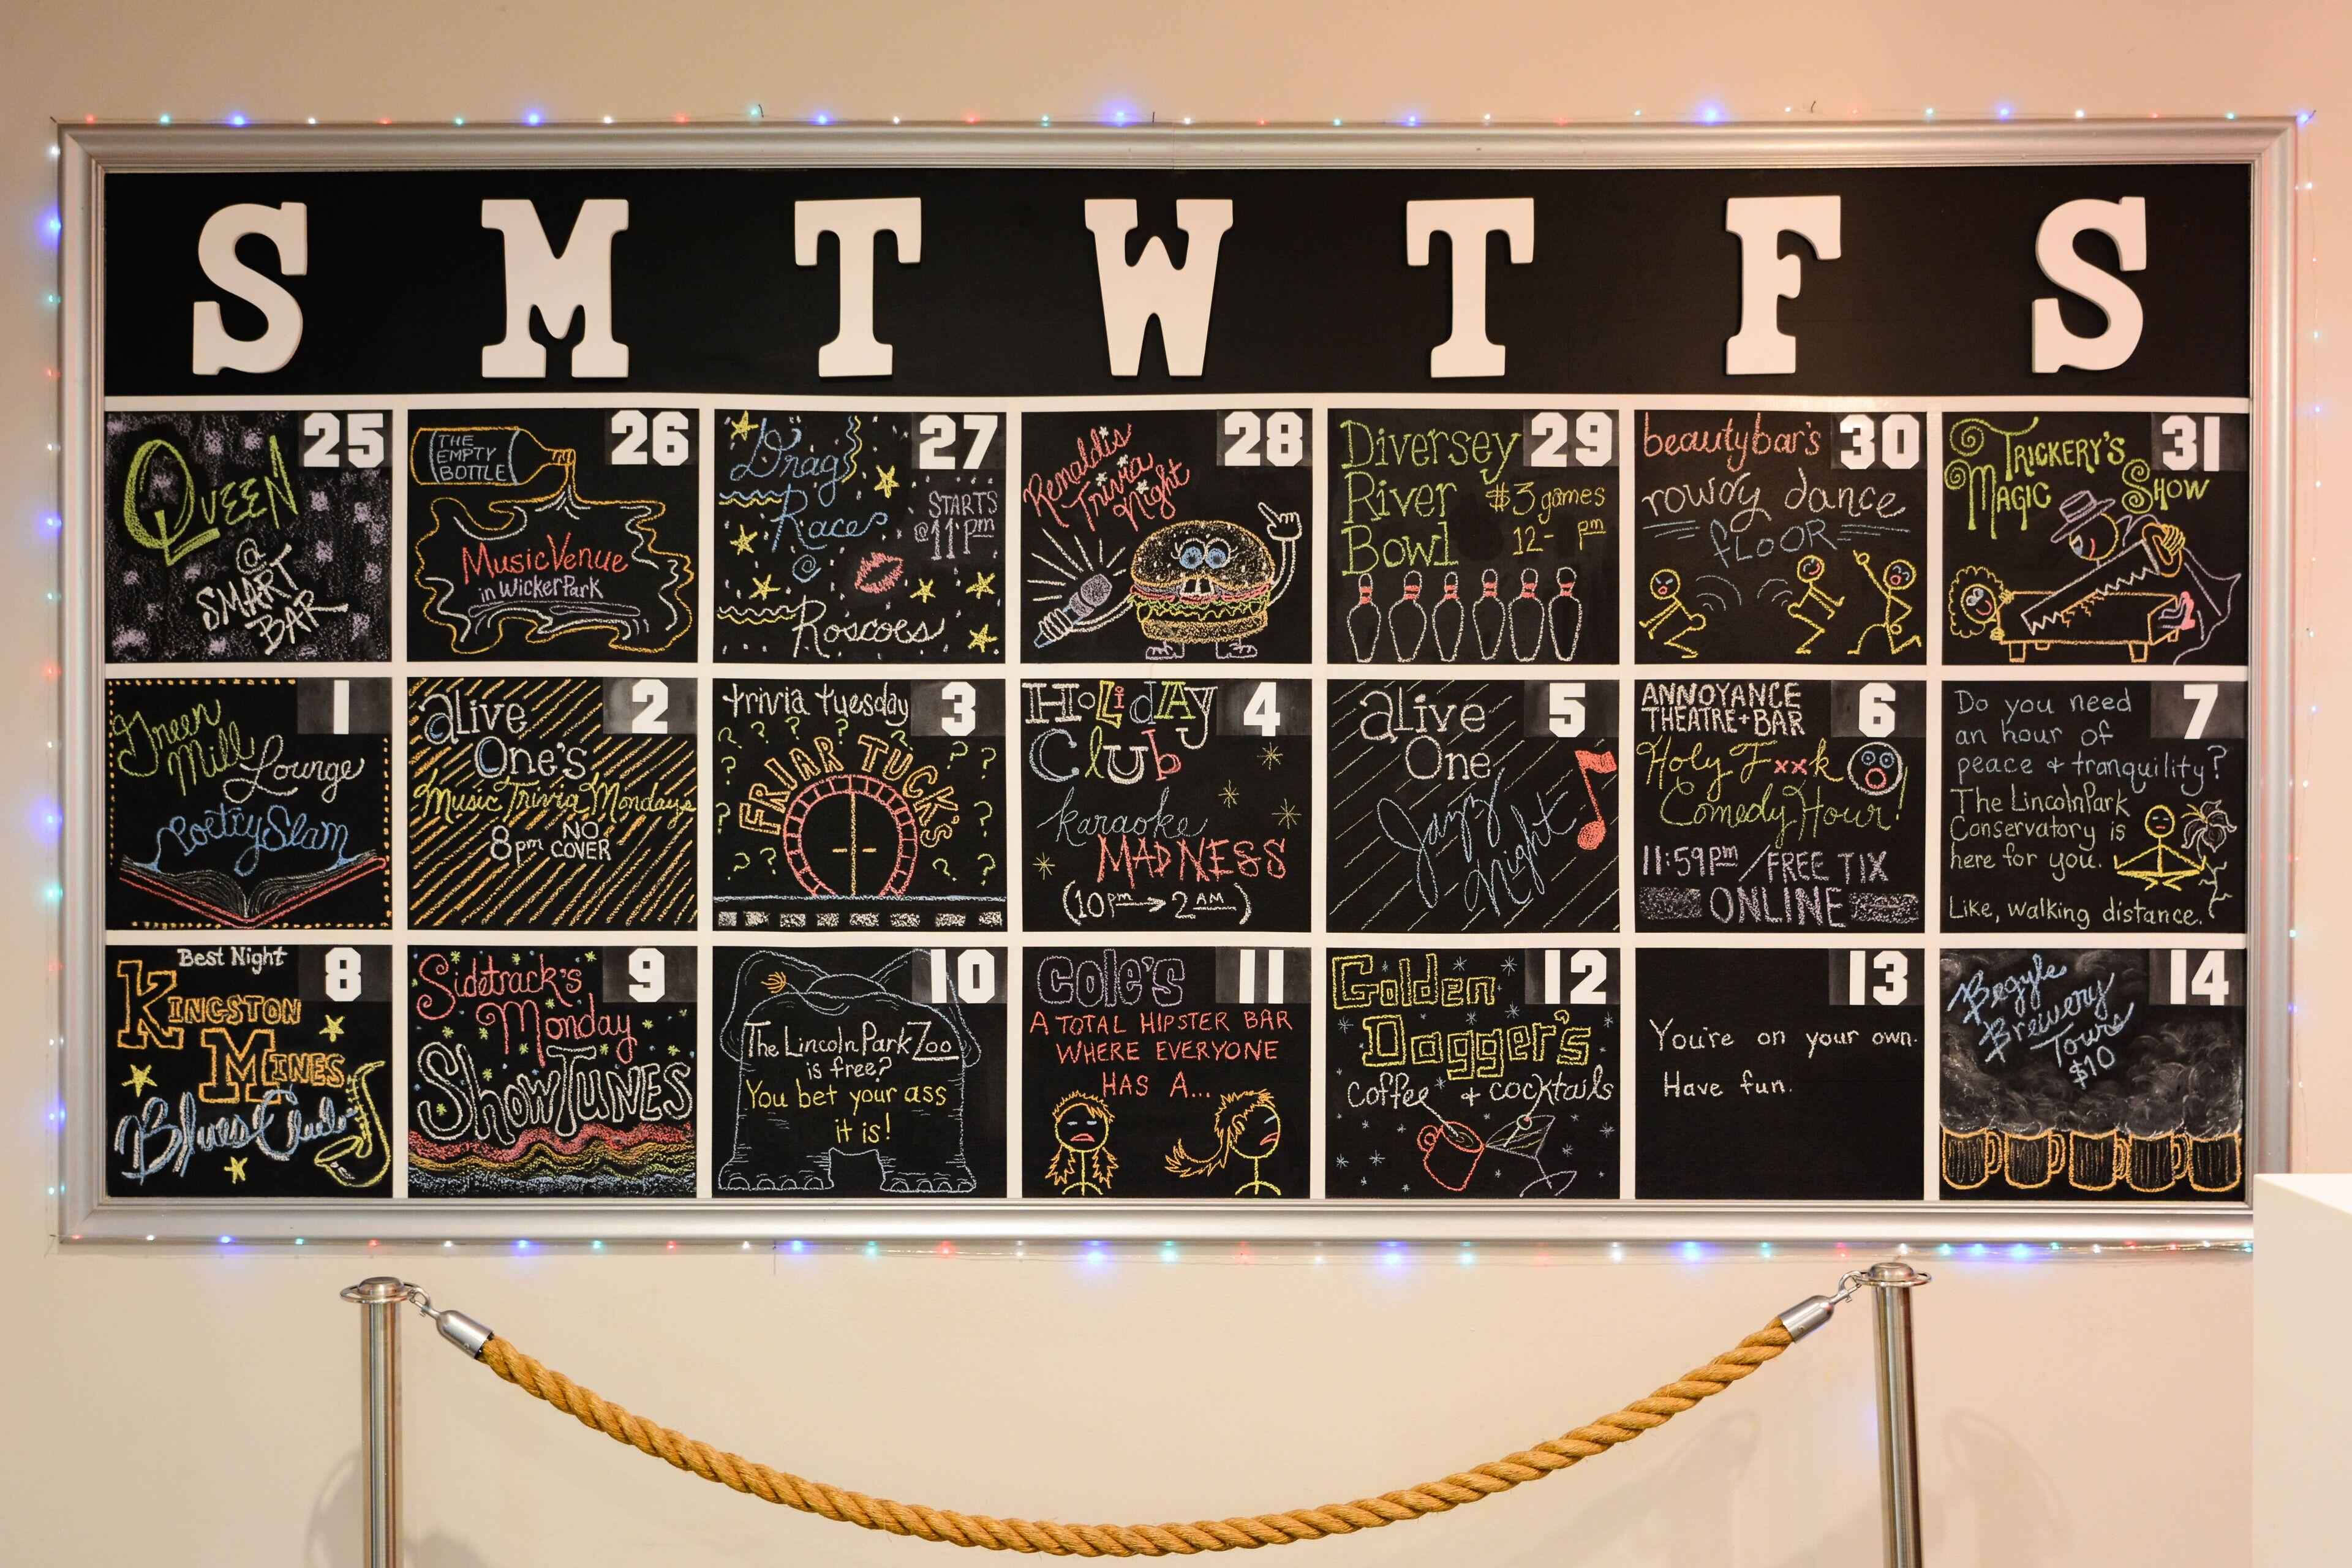 S M T W T F S
25
Queen
@
SMART
BAR
26
THE
EMPTY
BOTTLE
Music Venue
in Wicker Park
27
Drag
Race
STARTS
@ 11pm
Roscoes
28
Renaldi's
Trivia
Night
29
Diversey
River
Bowl
$3 games
12- pm
30
beautybar's
rowdy dance
FLOOR
31
TRICKERY'S
MAGIC SHOW
1
Green
Mill
Lounge
Poetry Slam
2
alive
One's
Music Trivia Mondays
8pm NO
COVER
3
trivia tuesday
FRIAR TUCK'S
4
HOLIdAY
Club
karaoke
MADNESS
(10pm→2AM)
5
alive
One
Jazz
Night
6
ANNOYANCE
THEATRE+BAR
Holy Fxxk
Comedy Hour!
11:59pm/FREE TIX
ONLINE
7
Do you need
an hour of
peace + tranquility?
The Lincoln Park
Conservatory is
here for you.
Like, walking distance.
8
Best Night
KINGSTON
MINES
Blues Club
9
Sidetrack's
Monday
SHOWTUNES
10
The Lincoln Park Zoo
is free?
You bet your ass
it is!
11
Cole's
A TOTAL HIPSTER BAR
WHERE EVERYONE
HAS A...
12
Golden
Dagger's
coffee + cocktails
13
You're on your own.
Have fun.
14
Begyle
Brewery
Tours
$10